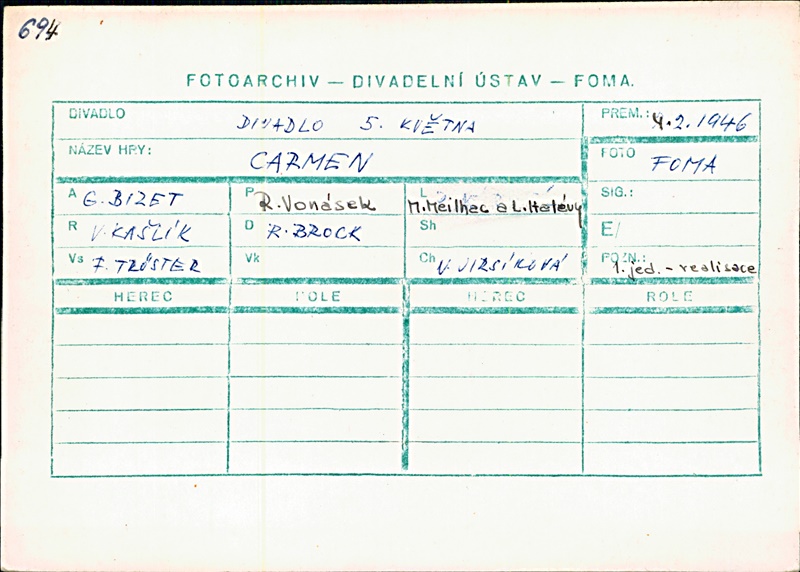 694
FOTOARCHIV — DIVADELNÍ ÚSTAV — FOMA.
DIVADLO DIVADLO 5. KVĚTNA PREM.: 4.2.1946
NÁZEV HRY: CARMEN FOTO FOMA
A G. BIZET P R. Vonásek L M. Meilhac a L. Halévy SIG.:
R V. KAŠLÍK D R. BROCK Sh E/
Vs F. TRÖSTER Vk Ch V. JIRSÍKOVÁ POZN.: 1. jed. - realisace
HEREC ROLE HEREC ROLE